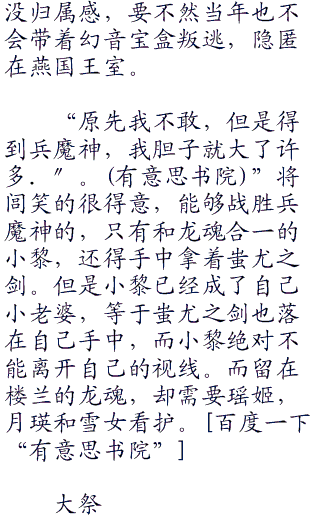 没归属感，要不然当年也不
会带着幻音宝盒叛逃，隐匿
在燕国王室。
“原先我不敢，但是得
到兵魔神，我胆子就大了许
多．〃。(有意思书院)”将
闾笑的很得意，能够战胜兵
魔神的，只有和龙魂合一的
小黎，还得手中拿着蚩尤之
剑。但是小黎已经成了自己
小老婆，等于蚩尤之剑也落
在自己手中，而小黎绝对不
能离开自己的视线。而留在
楼兰的龙魂，却需要瑶姬，
月瑛和雪女看护。[百度一下
“有意思书院”]
大祭